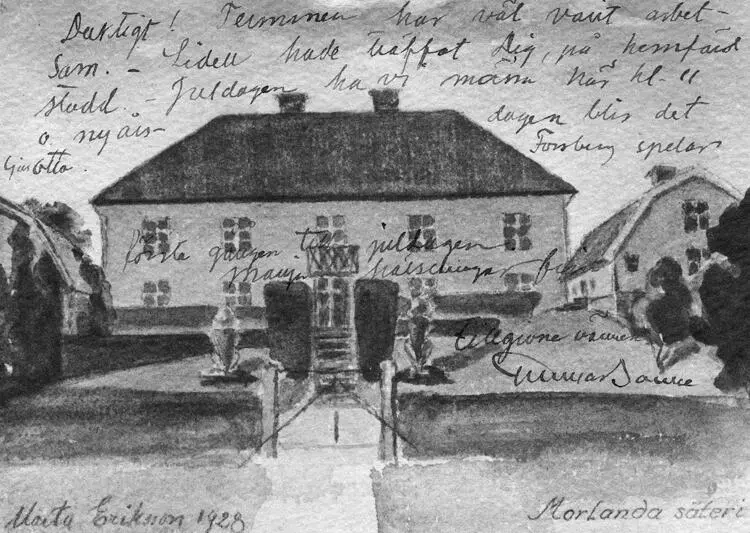 Duktigt! Terminen har väl varit arbet-
sam. - Lidell hade träffat Dig, på hemfärd
stadd. - Juldagen ha vi mässa här kl. 11
o. nyårs- dagen blir det
otta. Forsberg spelar
första gången till juldagen.
tillgivne vännen
Märta Erikson 1928
Morlanda säteri